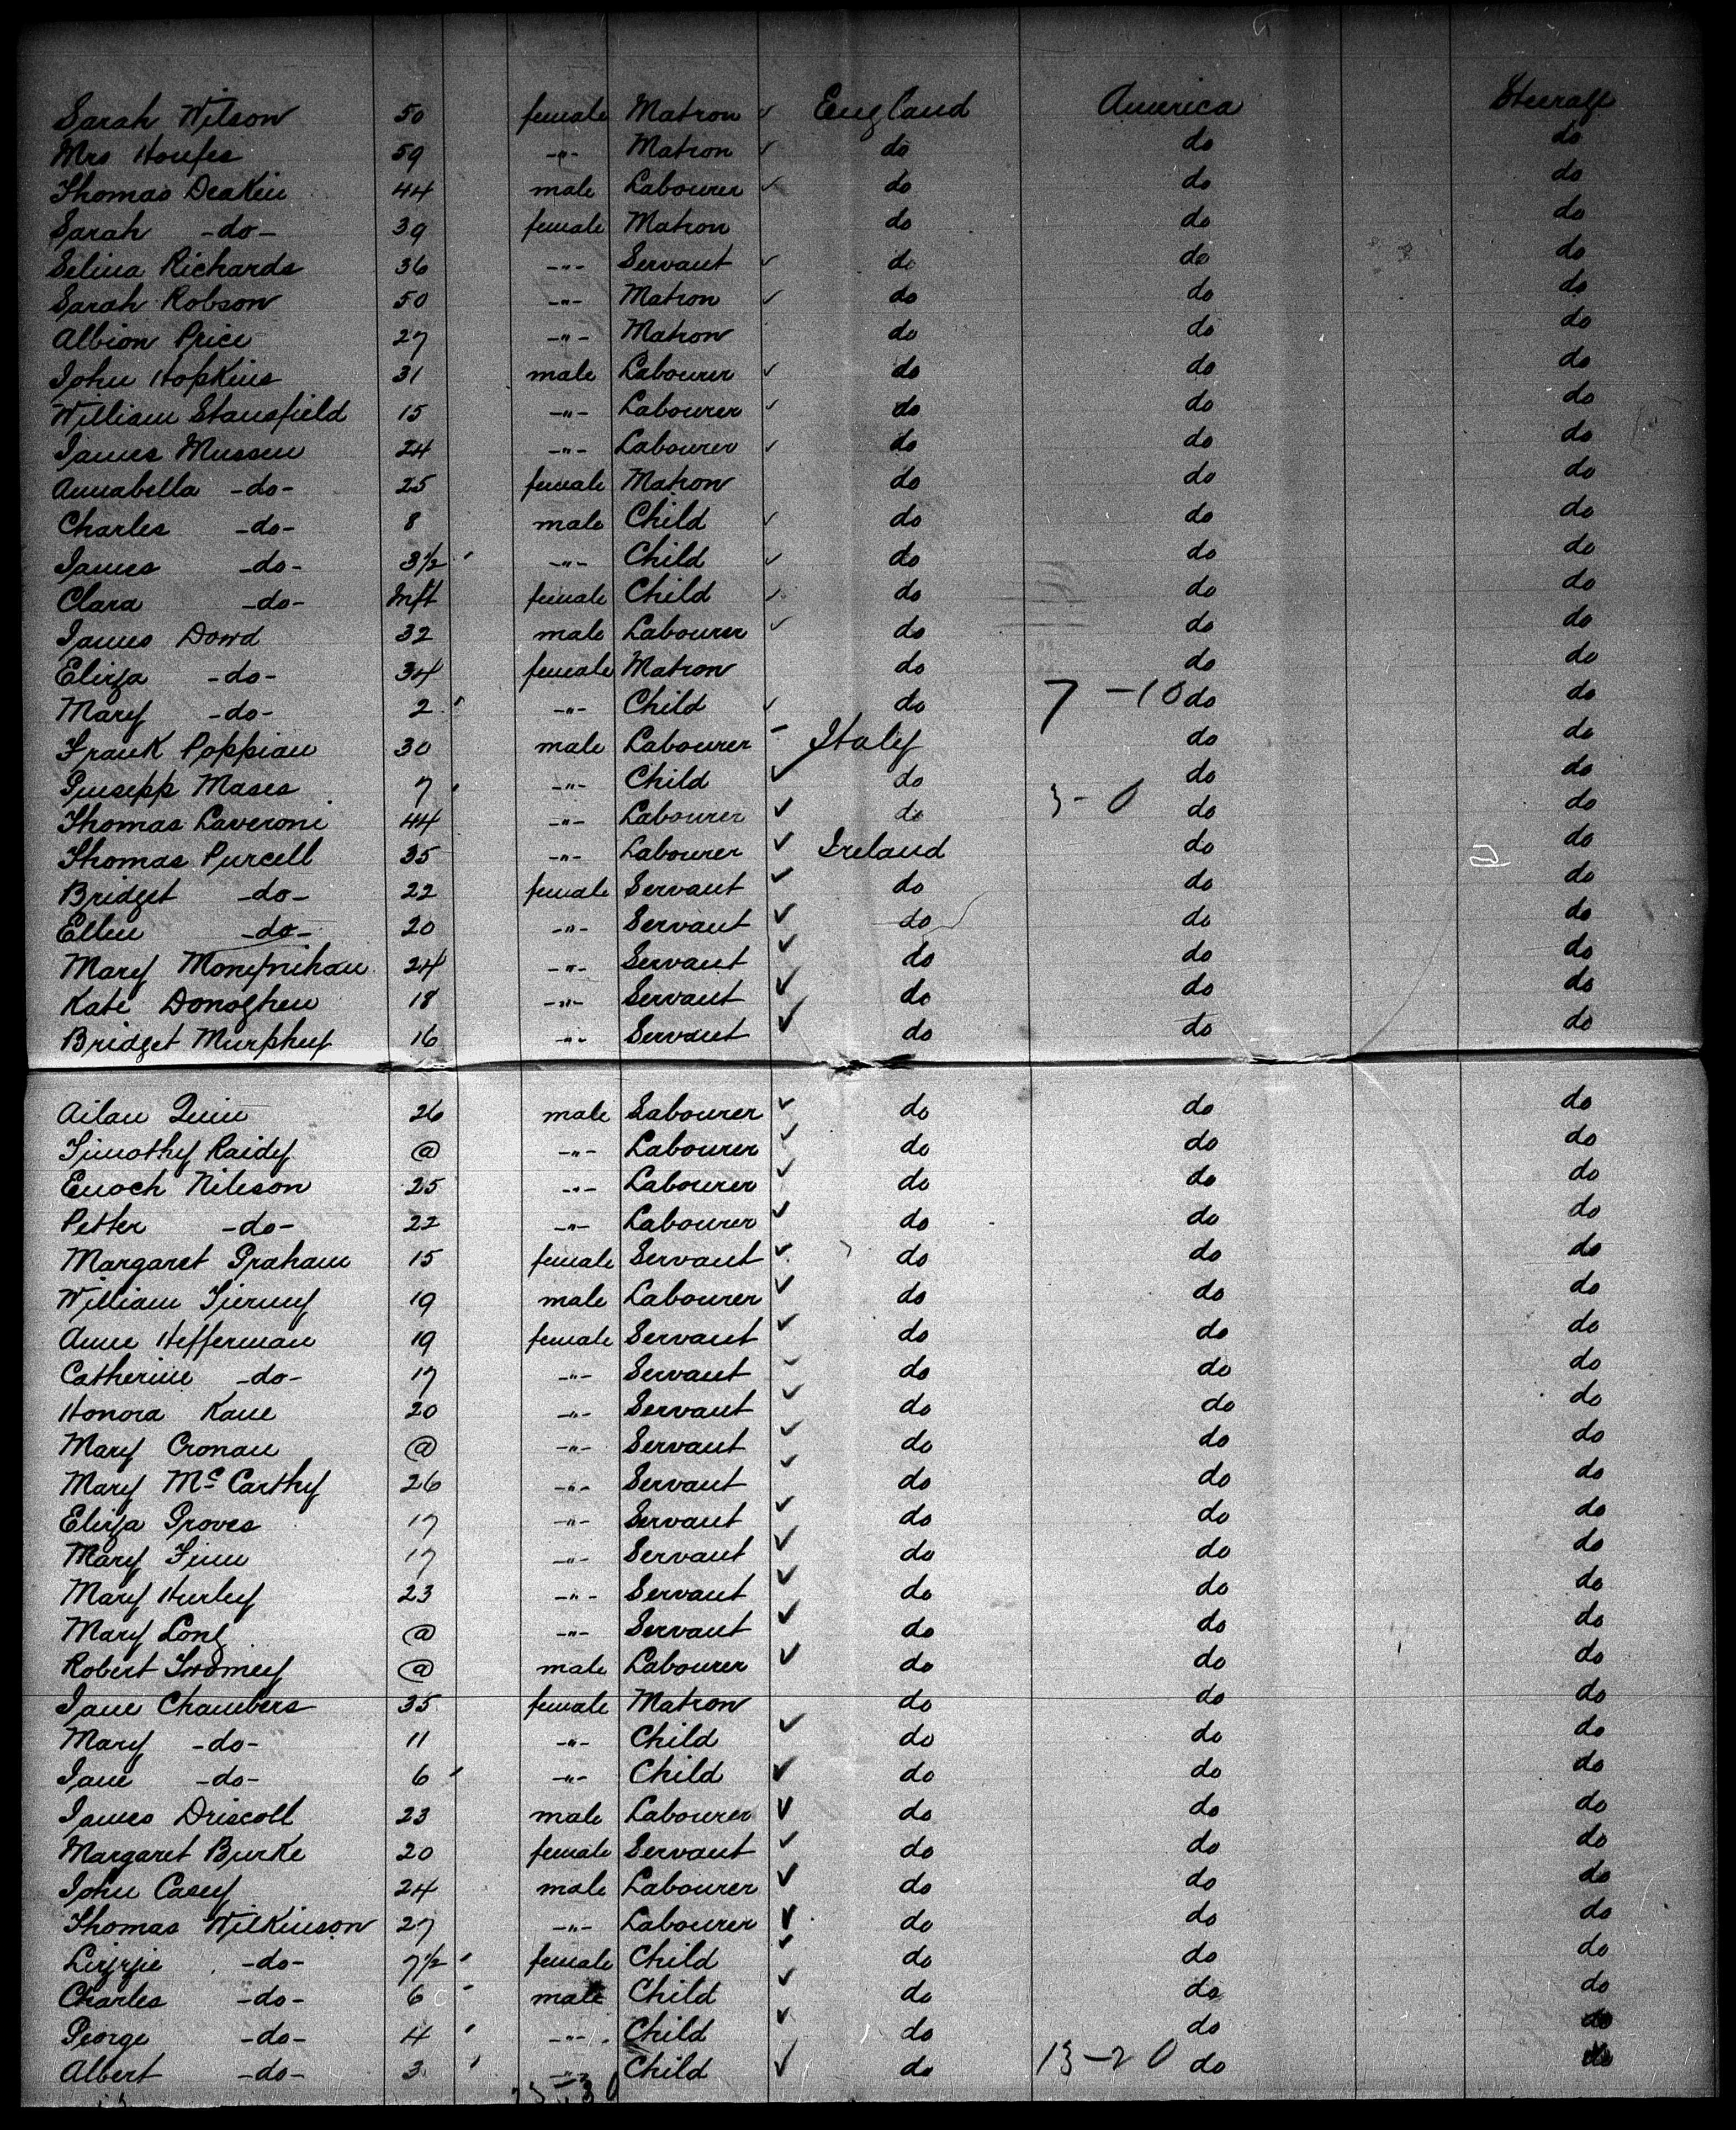 Sarah Wilson 50 female Matron ✓ England America Steerage
Mrs 59 -"- Matron ✓ do do do
Thomas Deakin 44 male Labourer ✓ do do do
Sarah -do- 39 female Matron do do do
Selina Richards 36 -"- Servant ✓ do do do
Sarah Robson 50 -"- Matron ✓ do do do
Albion Price 27 -"- Matron do do do
John Hopkins 31 male Labourer ✓ do do do
William Stansfield 15 -"- Labourer ✓ do do do
James Mussen 24 -"- Labourer ✓ do do do
Annabella -do- 25 female Matron do do do
Charles -do- 8 male Child ✓ do do do
James -do- 3½ -"- Child ✓ do do do
Clara -do- Inft female Child ✓ do do do
James Dowd 32 male Labourer ✓ do do do
Eliza -do- 34 female Matron do do do
Mary -do- 2 -"- Child ✓ do 7 - 10 do do
Frank Poppiau 30 male Labourer - Italy do do
Giusepp Mases 7 -"- Child ✓ do do do
Thomas Laveroni 44 -"- Labourer ✓ do 3 - 0 do do
Thomas Purcell 35 -"- Labourer ✓ Ireland do do
Bridget -do- 22 female Servant ✓ do do do
Ellen -do- 20 -"- Servant ✓ do do do
Mary Moneynihan 24 -"- Servant ✓ do do do
Kate Donoghen 18 -"- Servant ✓ do do do
Bridget Murphey 16 -"- Servant ✓ do do do
Ailan Quin 26 male Labourer ✓ do do do
Timothy Raidy @ -"- Labourer ✓ do do do
Enoch Nilsson 25 -"- Labourer ✓ do do do
Petter -do- 22 -"- Labourer ✓ do do do
Margaret Graham 15 female Servant ✓ do do do
William Tierney 19 male Labourer ✓ do do do
Anne Hefferman 19 female Servant ✓ do do do
Catherine -do- 17 -"- Servant ✓ do do do
Honora Kane 20 -"- Servant ✓ do do do
Mary Cronan @ -"- Servant ✓ do do do
Mary McCarthy 26 -"- Servant ✓ do do do
Eliza Groves 17 -"- Servant ✓ do do do
Mary Finn 17 -"- Servant ✓ do do do
Mary Hurley 23 -"- Servant ✓ do do do
Mary Long @ -"- Servant ✓ do do do
Robert Twomey @ male Labourer ✓ do do do
Jane Chambers 35 female Matron do do do
Mary -do- 11 -"- Child ✓ do do do
Jane -do- 6 -"- Child ✓ do do do
James Driscoll 23 male Labourer ✓ do do do
Margaret Burke 20 female Servant ✓ do do do
John Casey 24 male Labourer ✓ do do do
Thomas Wilkinson 27 -"- Labourer ✓ do do do
Lizzie -do- 7½ female Child ✓ do do do
Charles -do- 6 male Child ✓ do do do
George -do- 4 -"- Child ✓ do do do
Albert -do- 3 -"- Child ✓ do 13 - 20 do do